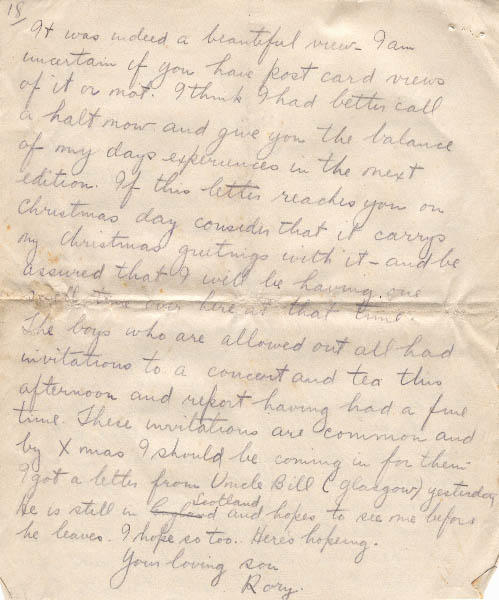 18/
It was indeed a beautiful view - I am
uncertain if you have post card views
of it or not. I think I had better call
a halt now and give you the balance
of my days experiences in the next
edition. If this letter reaches you on
Christmas day consider that it carrys
my Christmas greetings with it - and be
assured that I will be having one
swell time over here at that time.
The boys who are allowed out all had
invitations to a concert and tea this
afternoon and report having had a fine
time. These invitations are common and
by Xmas I should be coming in for them.
I got a letter from Uncle Bill (Glasgow) yesterday
Scotland
he is still in England and hopes to see me before
he leaves. I hope so too. Heres hopeing.
Your loving son
Rory.